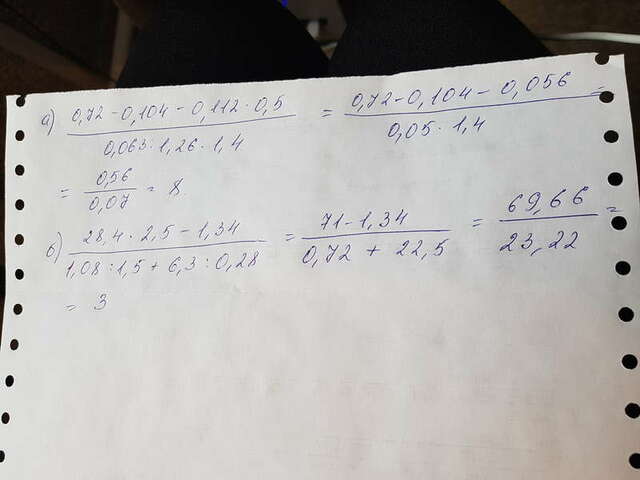 а) (0,72 - 0,104 - 0,112 · 0,5) / (0,063 · 1,26 · 1,4) = (0,72 - 0,104 - 0,056) / (0,05 · 1,4) =
= 0,56 / 0,07 = 8
б) (28,4 · 2,5 - 1,34) / (1,08 : 1,5 + 6,3 : 0,28) = (71 - 1,34) / (0,72 + 22,5) = 69,66 / 23,22 =
= 3